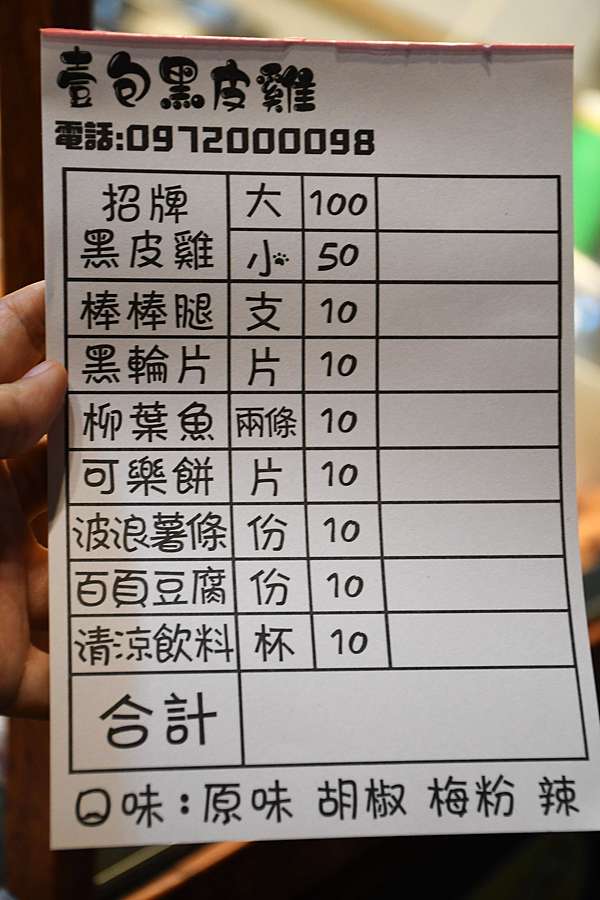 壹句黑皮雞
電話:0972000098
招牌 大 100
黑皮雞 小 50
棒棒腿 支 10
黑輪片 片 10
柳葉魚 兩條 10
可樂餅 片 10
波浪薯條 份 10
百頁豆腐 份 10
清涼飲料 杯 10
合計
口味:原味 胡椒 梅粉 辣